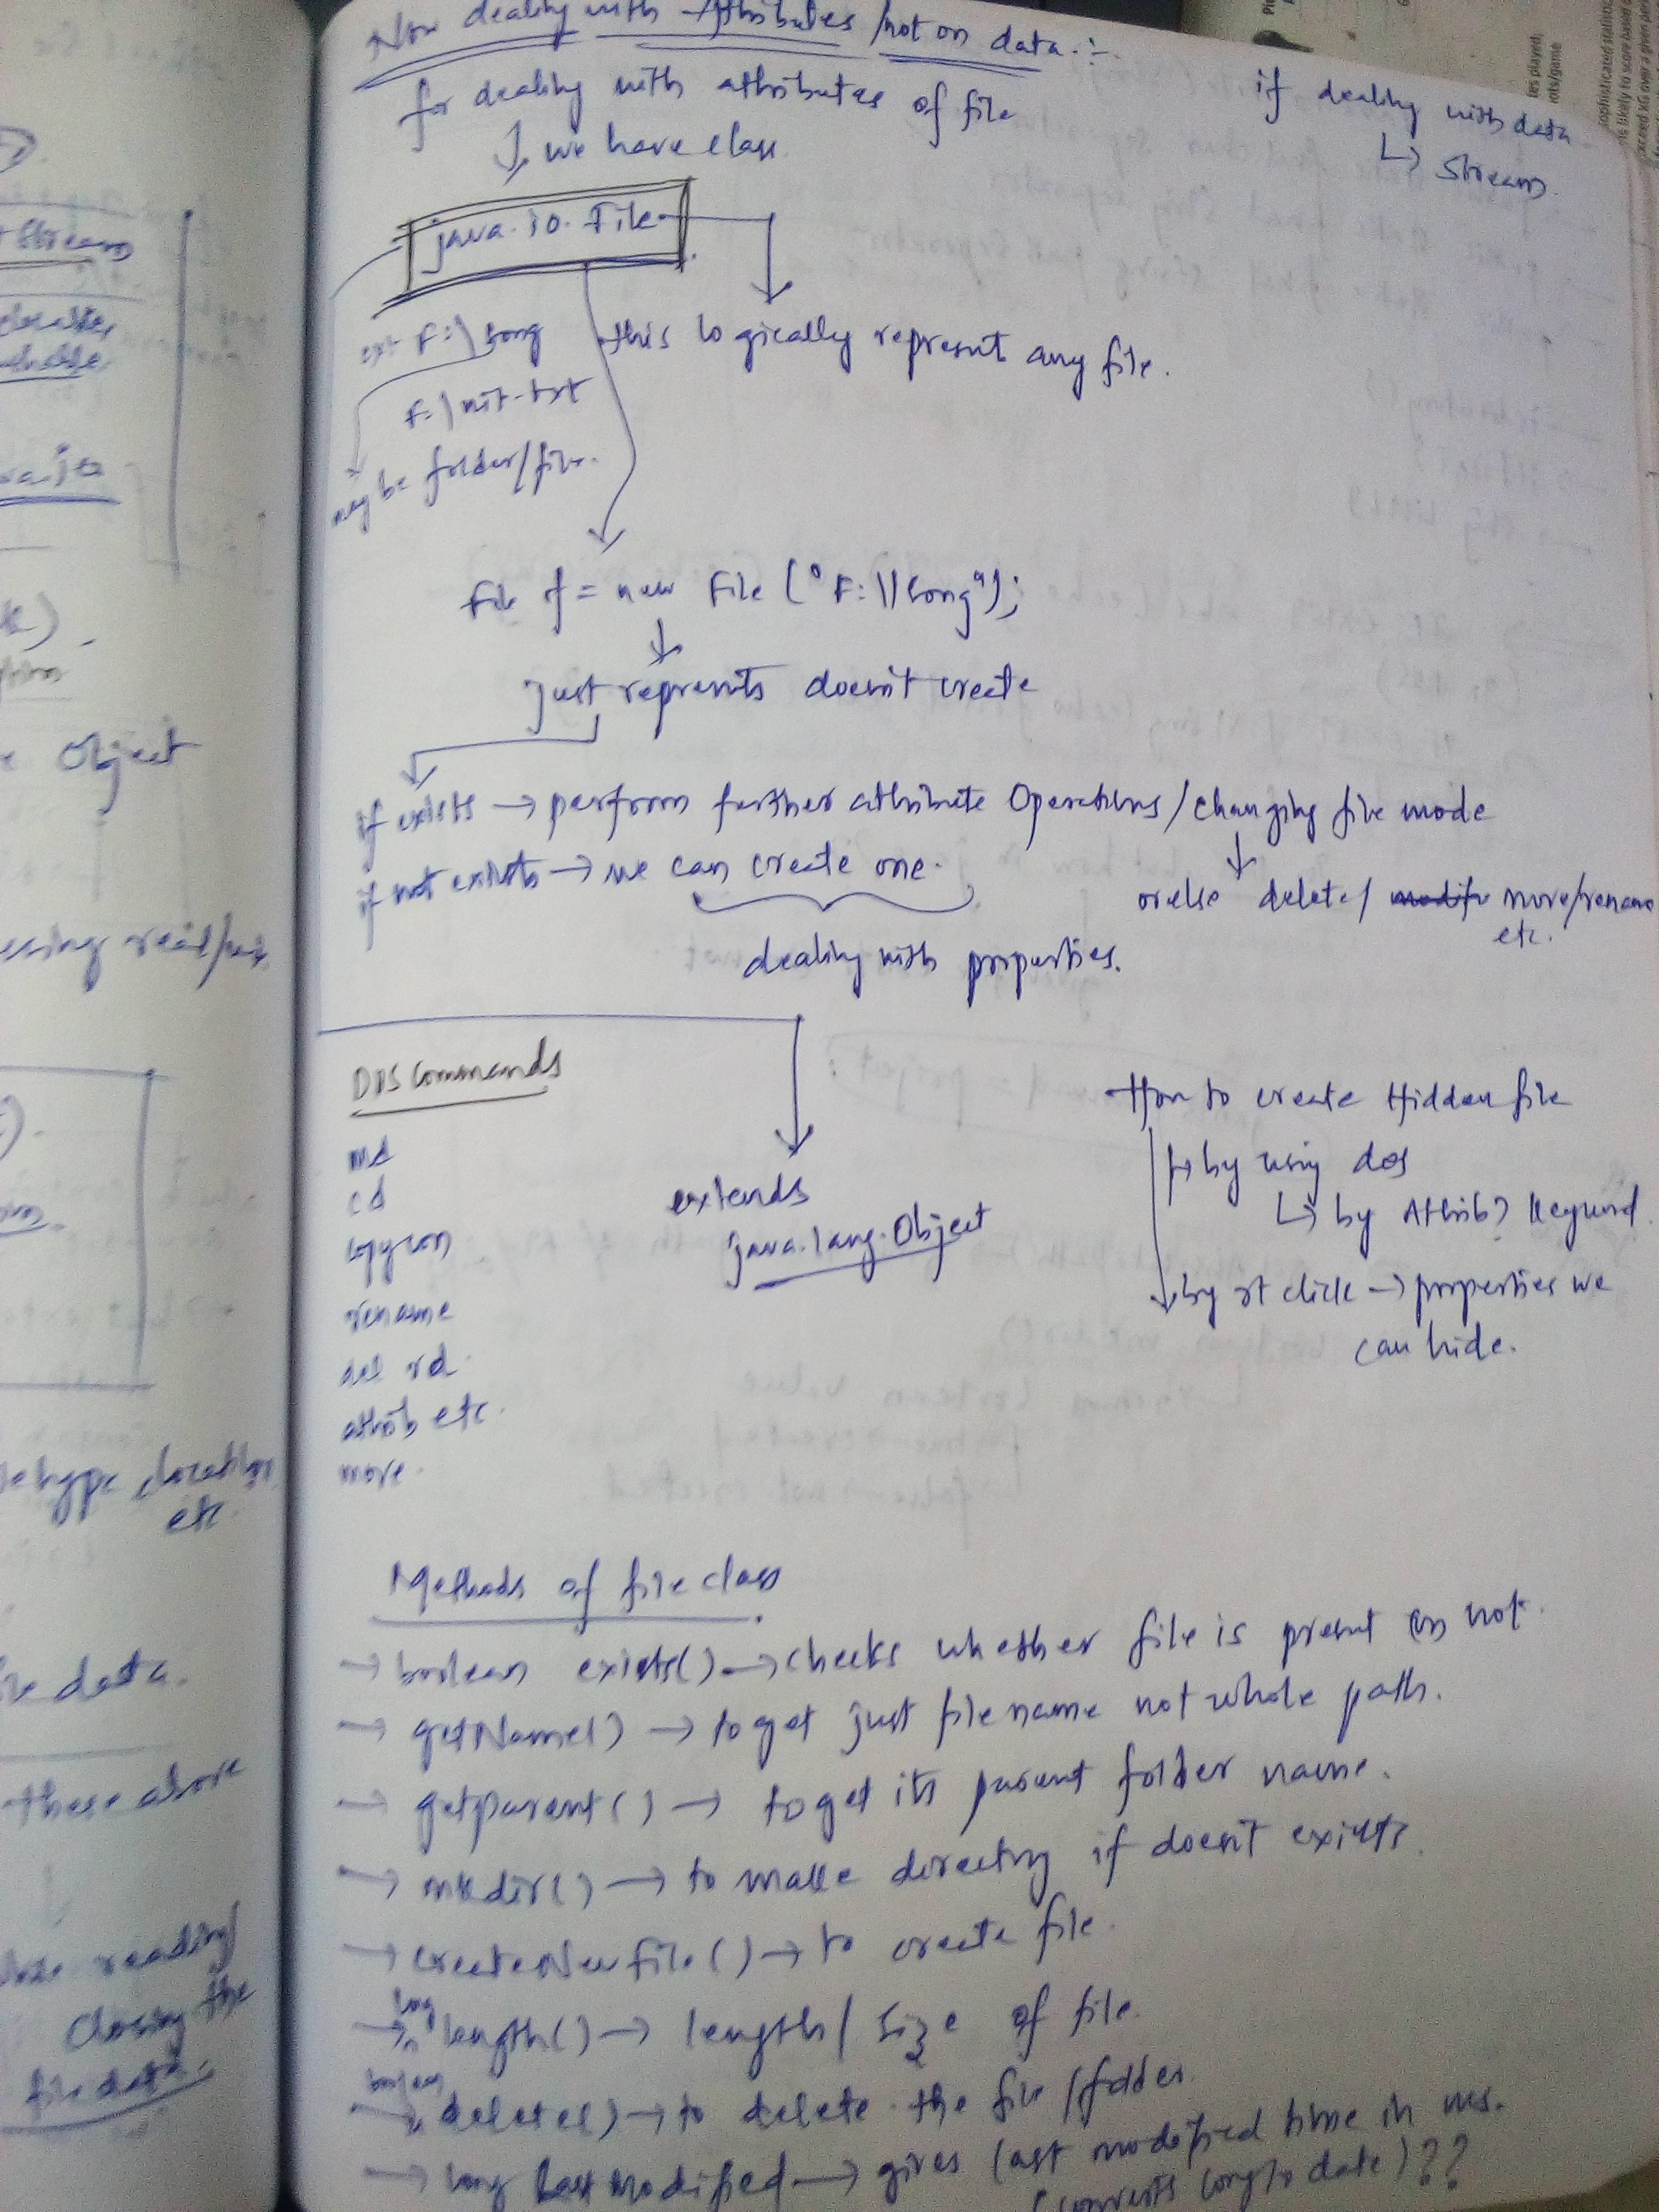 Now dealing with Attributes /not on data :-
for dealing with attributes of file
we have class
if dealing with data
Stream
java.io.File
ex:- F:\song
this logically represent any file.
F:\nit.txt
may be folder/file.
File f = new File ("F:\\song");
just represents doesn't create
if exists → perform further attribute Operations/changing file mode
if not exists → we can create one.
or else delete/ modify move/rename
etc.
dealing with properties.
DOS Commands
md
cd
copycon
rename
del rd
attrib etc.
move
extends
java.lang.Object
How to create Hidden file
by using dos
by Attrib? keyword
by rt click → properties we
can hide.
Methods of file class
→ boolean exists() → checks whether file is present or not.
→ getName() → to get just file name not whole path.
→ getparent() → to get its parent folder name.
→ mkdir() → to make directory if doesn't exists.
→ createNewFile() → to create file.
→ long length() → length/ size of file.
→ boolean delete() → to delete the file/folder.
→ long lastModified → gives last modified time in ms.
(converts long to date)??
Stream
Object
etc
data.
these above
reading/
closing the
file data.